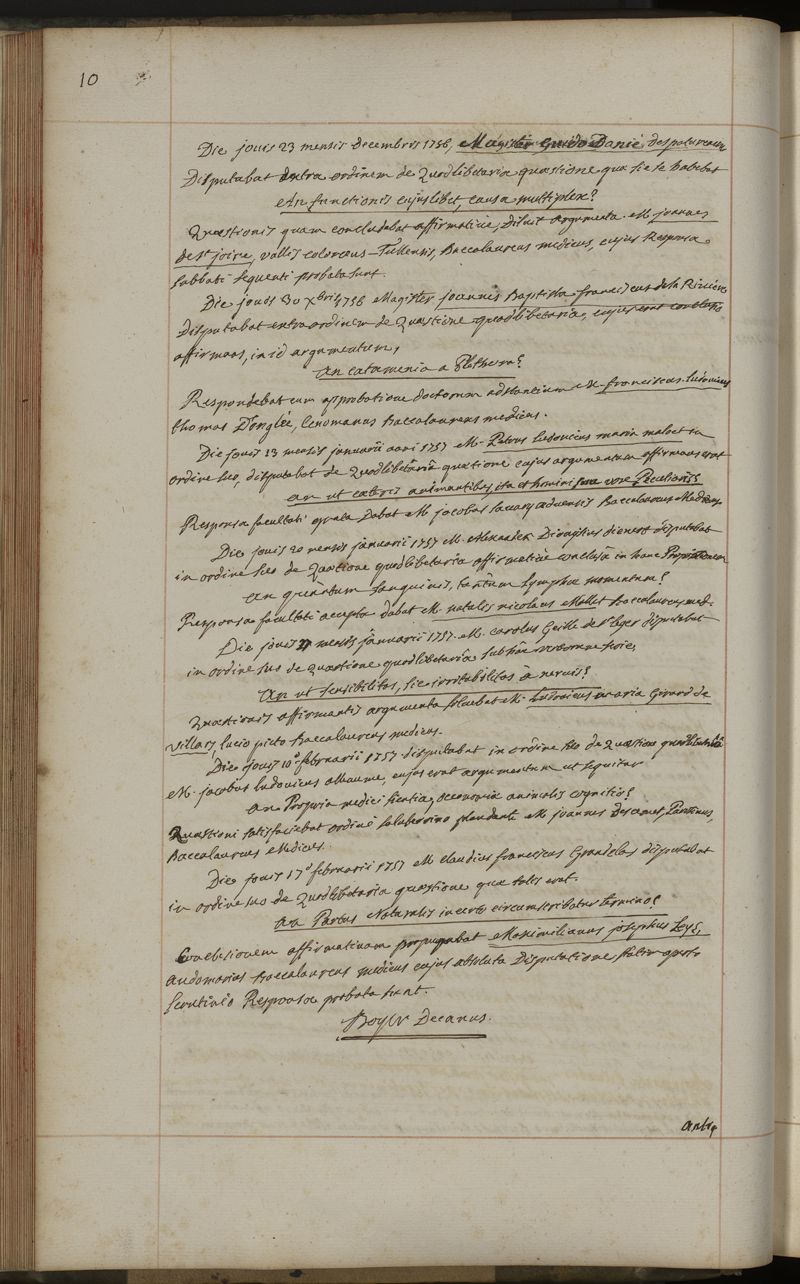 10
Die jovis 23 mensis decembris 1756, Magister Guido Danié despatureaux
Disputabat extra ordinem de Quodlibetaria quæstione quæ sic se habebat
An functionis cujuslibet, causa multiplex?
Quæstionis quam concludebat affirmative, diluit argumenta M joannes
de St joire, vallis coloreus-Tullensis, Baccalaureus medicus, cujus Responsa
sabbati sequenti probata sunt.
Die jovis 30 Xbris 1756 Magister joannes Baptista franciscus de la Riviere
Disputabat extra ordinem de Quæstione quodlibetaria, cujus erat conclusio
affirmans, in id argumentum,
An catamenia a Plethora?
Respondebat cum approbatione doctorum adstantium M. franciscus-ludovicus
thomas D'onglée, Cenomanus Baccalaureus medicus.
Die jovis 13 mensis januarii anni 1757 M. Petrus Ludovicus maria maloet in
ordine suo, disputabat de Quodlibetariâ quæstione cujus argumentum affirmans erat
an ut cæteris animantibus, ita et homini sua vox Peculiaris?
Responsa facultati grata Dabat M jacobus Savary Baccalaureus Medicus
Die jovis 20 mensis januarii 1757 M. Alexander Dionysius dienert disputabat
in ordine suo de Quæstione quodlibetariâ affirmativè conclusâ in hanc Propositionem
an quantum sanguinis, tantum lymphæ momentum?
Responsa facultati accepta dabat M. natalis nicolaus Mallet Baccalaureus med.
Die jovis 27 mensis januarii 1757. M. carolus Geille de St leger disputabat
in ordine suo de Quæstione quodlibetariâ sub hac verborum serie,
An ut sensibilitas, sic irritabilitas à nervis?
Quæstionis affirmantis argumenta solvebat M. Ludovicus maria Girard de
Villars, lucio picto Baccalaureus medicus.
Die jovis 10a februarii 1757 disputabat in ordine suo de Quæstione quodlibetariâ
M. jacobus ludovicus alleaume, cujus erat argumentum ut sequitur
an Propria medici scientia, oeconomiæ animalis cognitio?
Quæstioni satisfaciebat ordine saluberrimo plaudente M joannes Descemet, Parisinus,
Baccalaureus Medicus.
Die jovis 17a februarii 1757 M claudius franciscus Grandclas disputabat
in ordine suo de Quodlibetaria quæstione quæ talis erat.
an Partus Naturalis incerto circumscribatur termino?
Conclusionem affirmativam propugnabat Maximilianus josephus Leys,
audomarius Baccalaureus medicus cujus absoluta Disputatione statim aperto
scrutinio Responsa probata sunt.
Boyer Decanus.